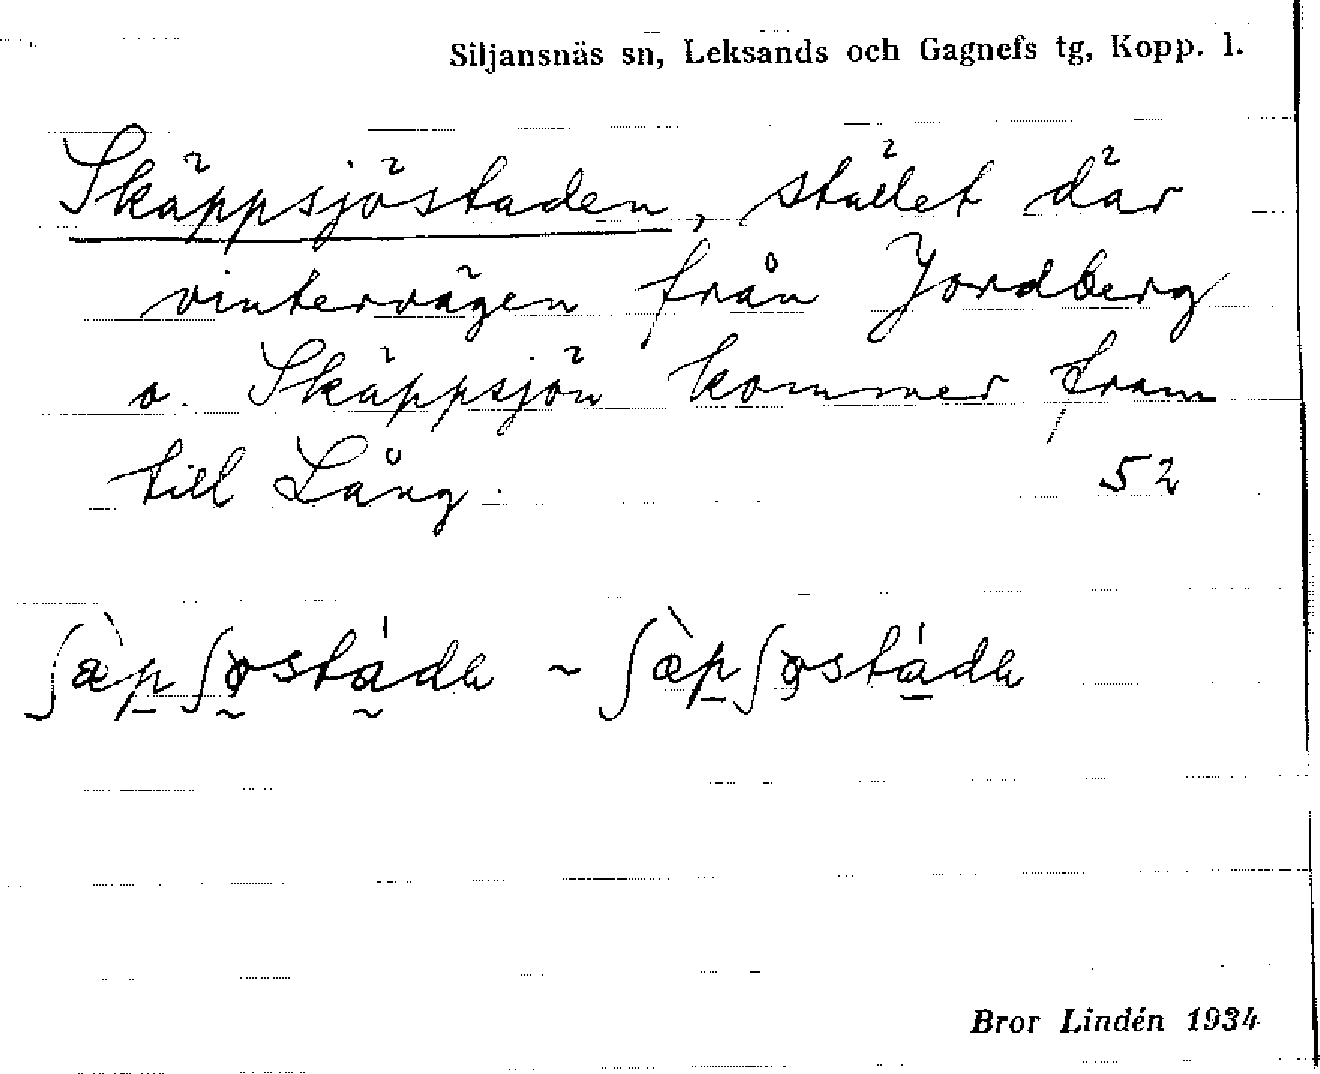 Siljansnäs sn, Leksands och Gagnefs tg, Kopp. l.
Skäppsjöstaden, stället där
vintervägen från Jordberg
o. Skäppsjön kommer fram
till Lång.
52
ʃæ̀pʃøstádn ~ ʃæ̀pʃøstádn
Bror Lindén 1934